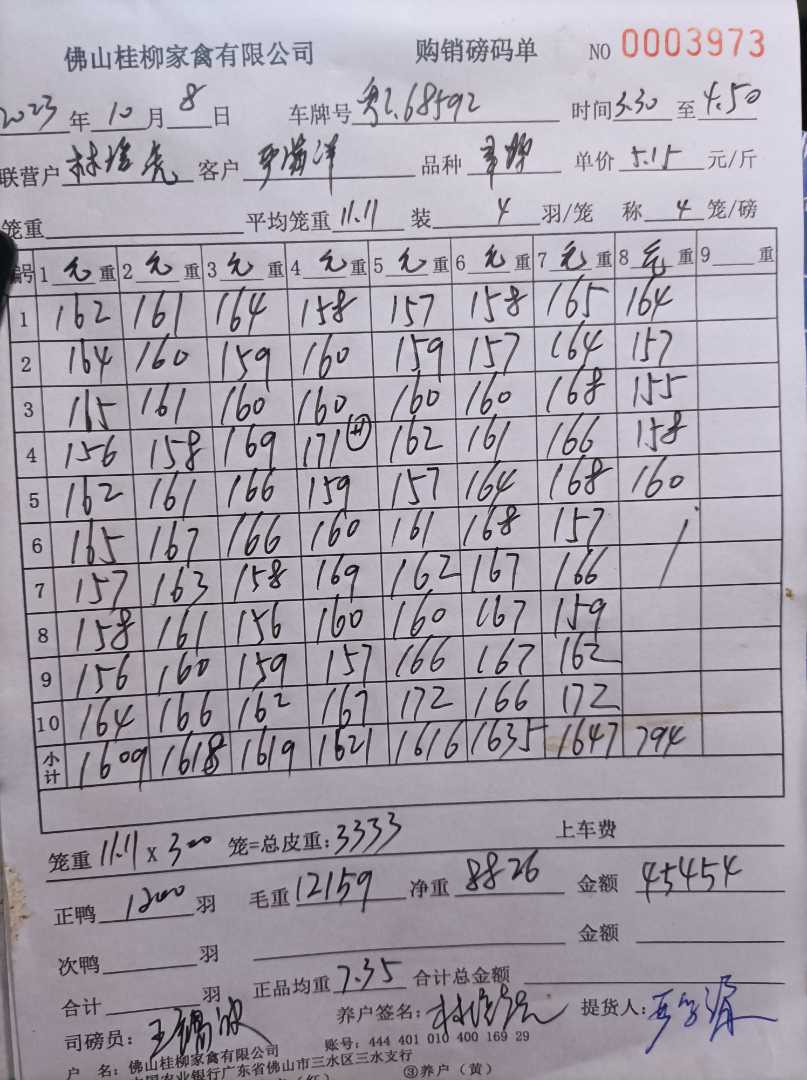 佛山桂柳家禽有限公司 购销磅码单 NO 0003973
2023 年 10 月 8 日 车牌号 粤Z.68592 时间 3.30 至 4.50
联营户 林培虎 客户 品种 单价 5.15 元/斤
笼重 平均笼重 11.11 装 4 羽/笼 称 4 笼/磅
编号 1 元 重 2 元 重 3 元 重 4 元 重 5 元 重 6 元 重 7 元 重 8 元 重 9 重
1 162 161 164 158 157 158 165 164
2 164 160 159 160 159 157 164 157
3 165 161 160 160 160 160 168 155
4 156 158 169 171 162 161 166 158
5 162 161 166 159 157 164 168 160
6 165 167 166 160 161 168 157
7 157 163 158 169 162 167 166
8 158 161 156 160 160 167 159
9 156 160 159 157 166 167 162
10 164 166 162 167 172 166 172
小计 1609 1618 1619 1621 1616 1635 1647 794
笼重 11.11 x 300 笼=总皮重: 3333 上车费
正鸭 1200 羽 毛重 12159 净重 8826 金额 45454
次鸭 羽 金额
合计 羽 正品均重 7.35 合计总金额
司磅员: 养户签名: 提货人:
户 名: 佛山桂柳家禽有限公司 账号: 444 401 010 400 169 29
中国农业银行广东省佛山市三水区三水支行
③养户（黄）